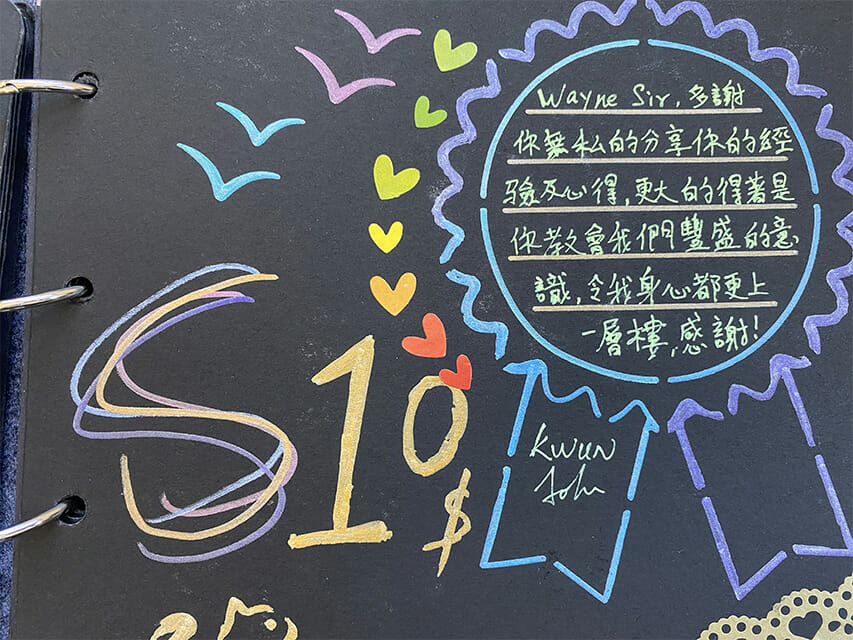 Wayne Sir, 多謝
你無私的分享你的經
驗及心得, 更大的得著是
你教會我們豐盛的意
識, 令我身心都更上
一層樓, 感謝!
S10
$
Kwun
John